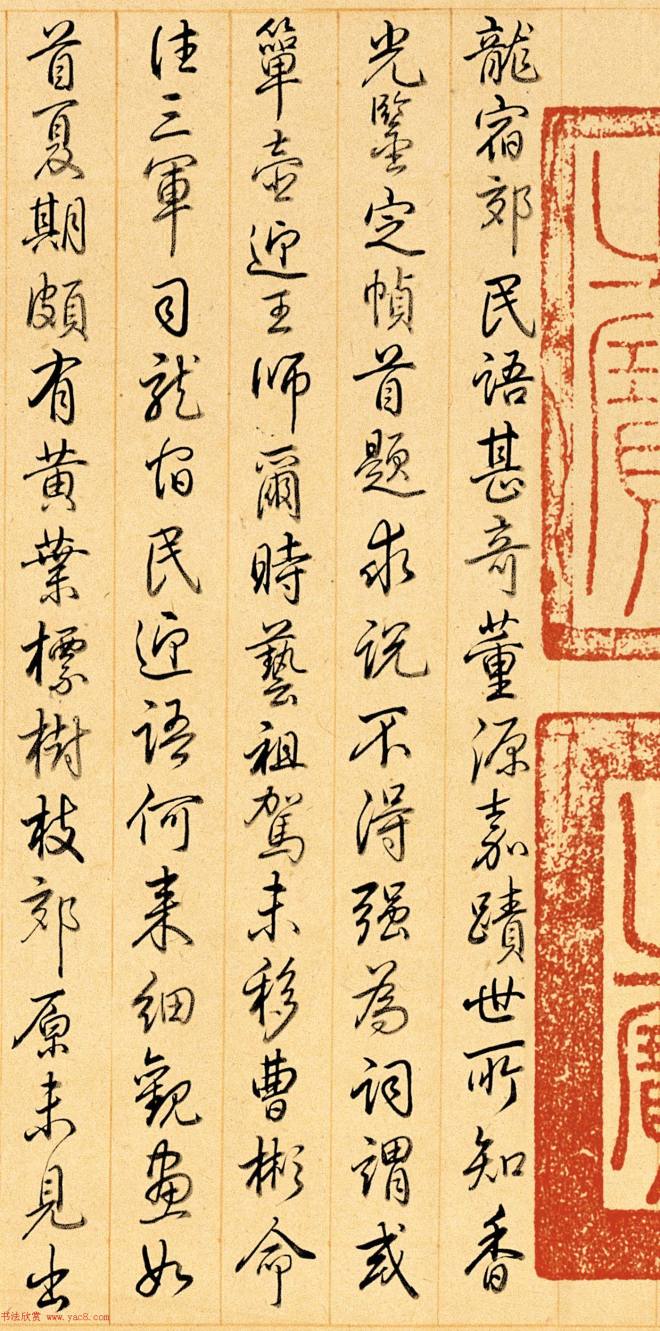 龍宿郊民語甚奇董源嘉蹟世所知香
光鑒定幀首題求説不得强為詞謂或
簞壺迎王師爾時藝祖駕未移曹彬命
往三軍司龍宿民迎語何來細觀畫如
首夏期頗有黃葉標樹枝郊原未見出
书法欣赏 www.yac8.com